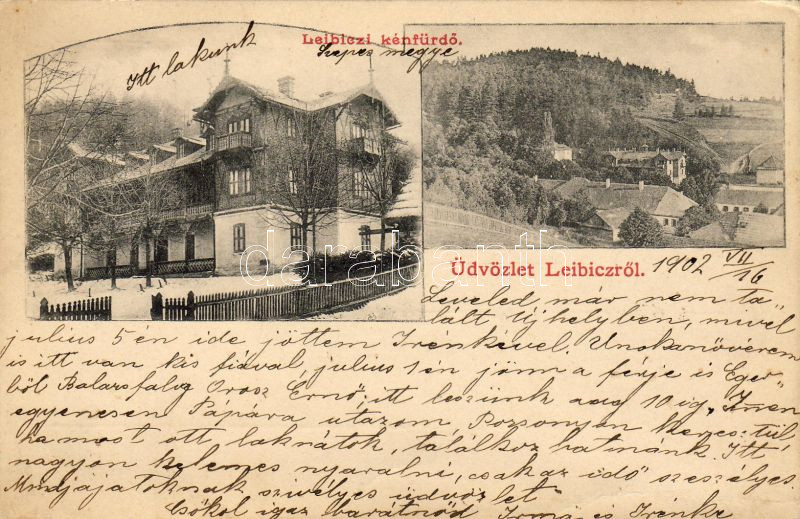 Leibiczi kénfürdő.
Itt lakunk
Szepes megye
darabanth
Üdvözlet Leibiczről. 1902 VII/16
Leveled már nem ta-
lált Ujhelyben, mivel
julius 5 én ide jöttem Irénkével. Unokanővérem
is itt van kis fiával, julius 1 én jönn a férje is Eger-
ből Balázsfalvy Orosz Ernő, itt leszünk aug 10 ig, Innen
egyenesen Pápára utazom Pozsonyon keresztül,
ha most ott laknátok, találkozhatnánk. Itt
nagyon kelemes nyaralni, csak az idő szeszélyes.
Mindjájatoknak szivélyes üdvözlet
Csókol igaz barátnőd Irma és Irénke